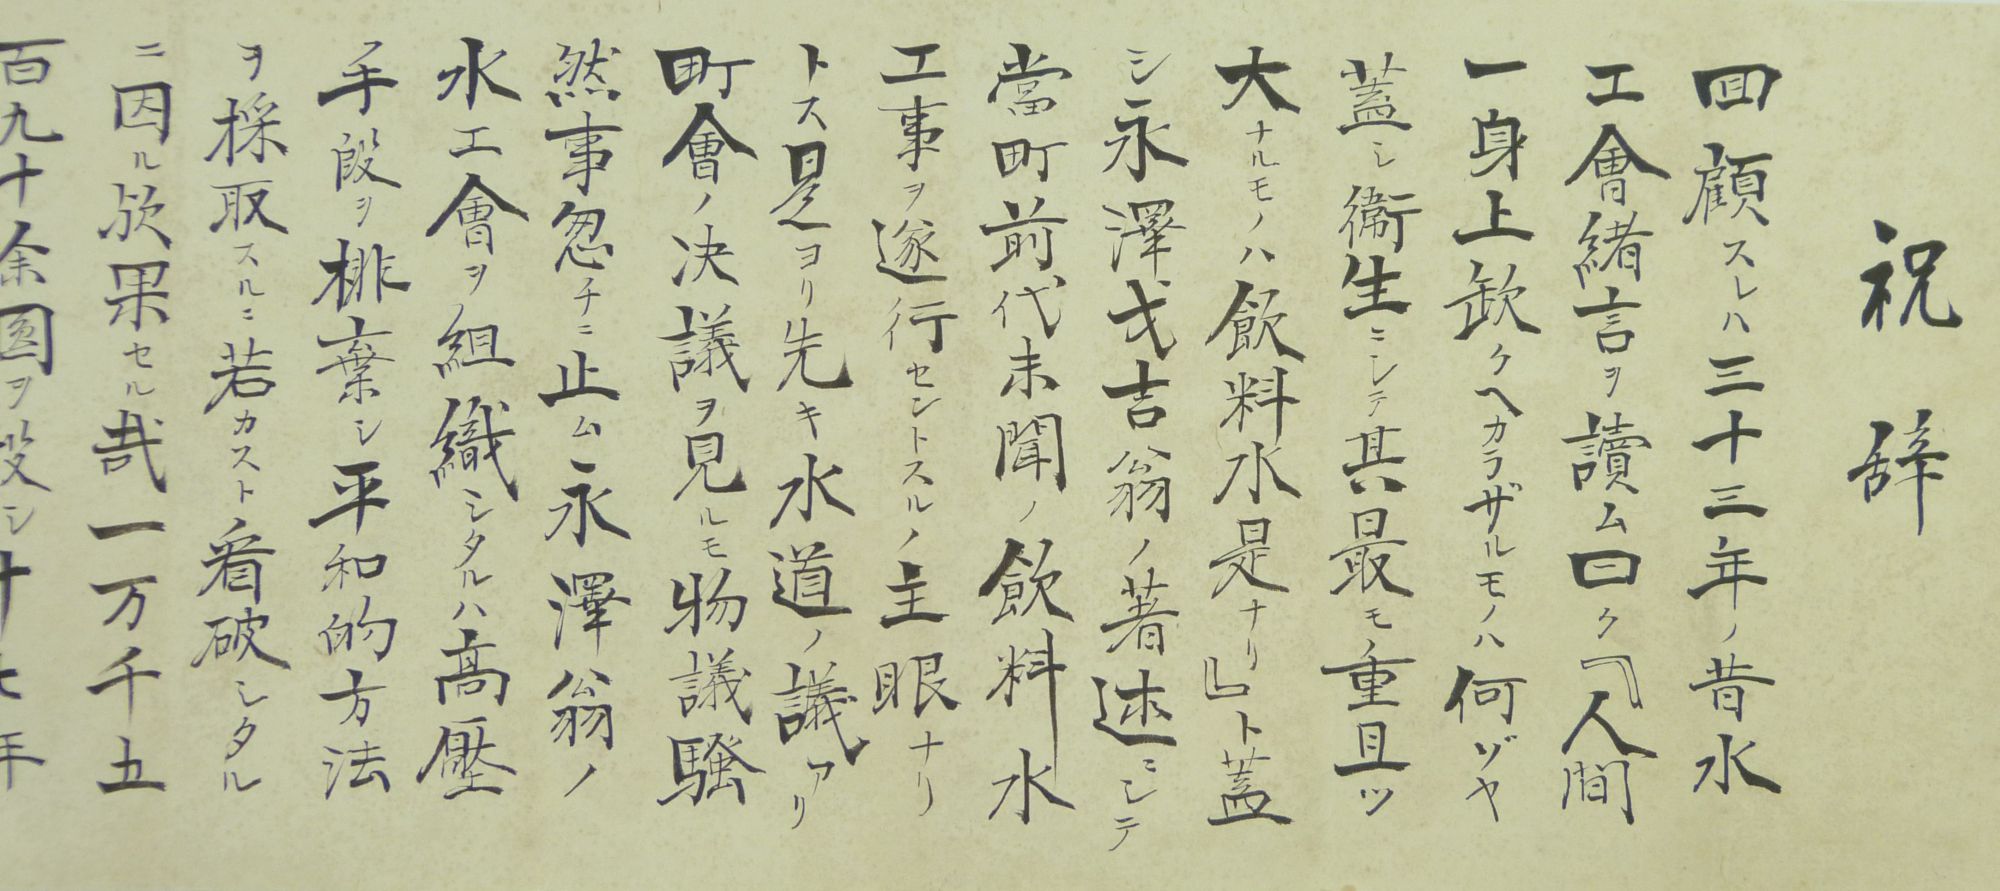 祝辞
回顧スレハ三十三年ノ昔水
工會緒言ヲ讀ム曰ク『人間
一身上欽クヘカラザルモノハ何ゾヤ
蓋シ衛生ニシテ其最モ重且ツ
大ナルモノハ飲料水是ナリ』ト蓋
シ永澤弌吉翁ノ著述ニシテ
當町前代未聞ノ飲料水
工事ヲ遂行セントスルノ主眼ナリ
トス是ヨリ先キ水道ノ議アリ
町會ノ决議ヲ見ルモ物議騒
然事忽チニ止ム永澤翁ノ
水工會ヲ組織シタルハ高壓
手段ヲ排棄シ平和的方法
ヲ採取スルニ若カストノ看破シタル
ニ因ル欣果セル哉一万千五
百九十余圓ヲ投シ十七年